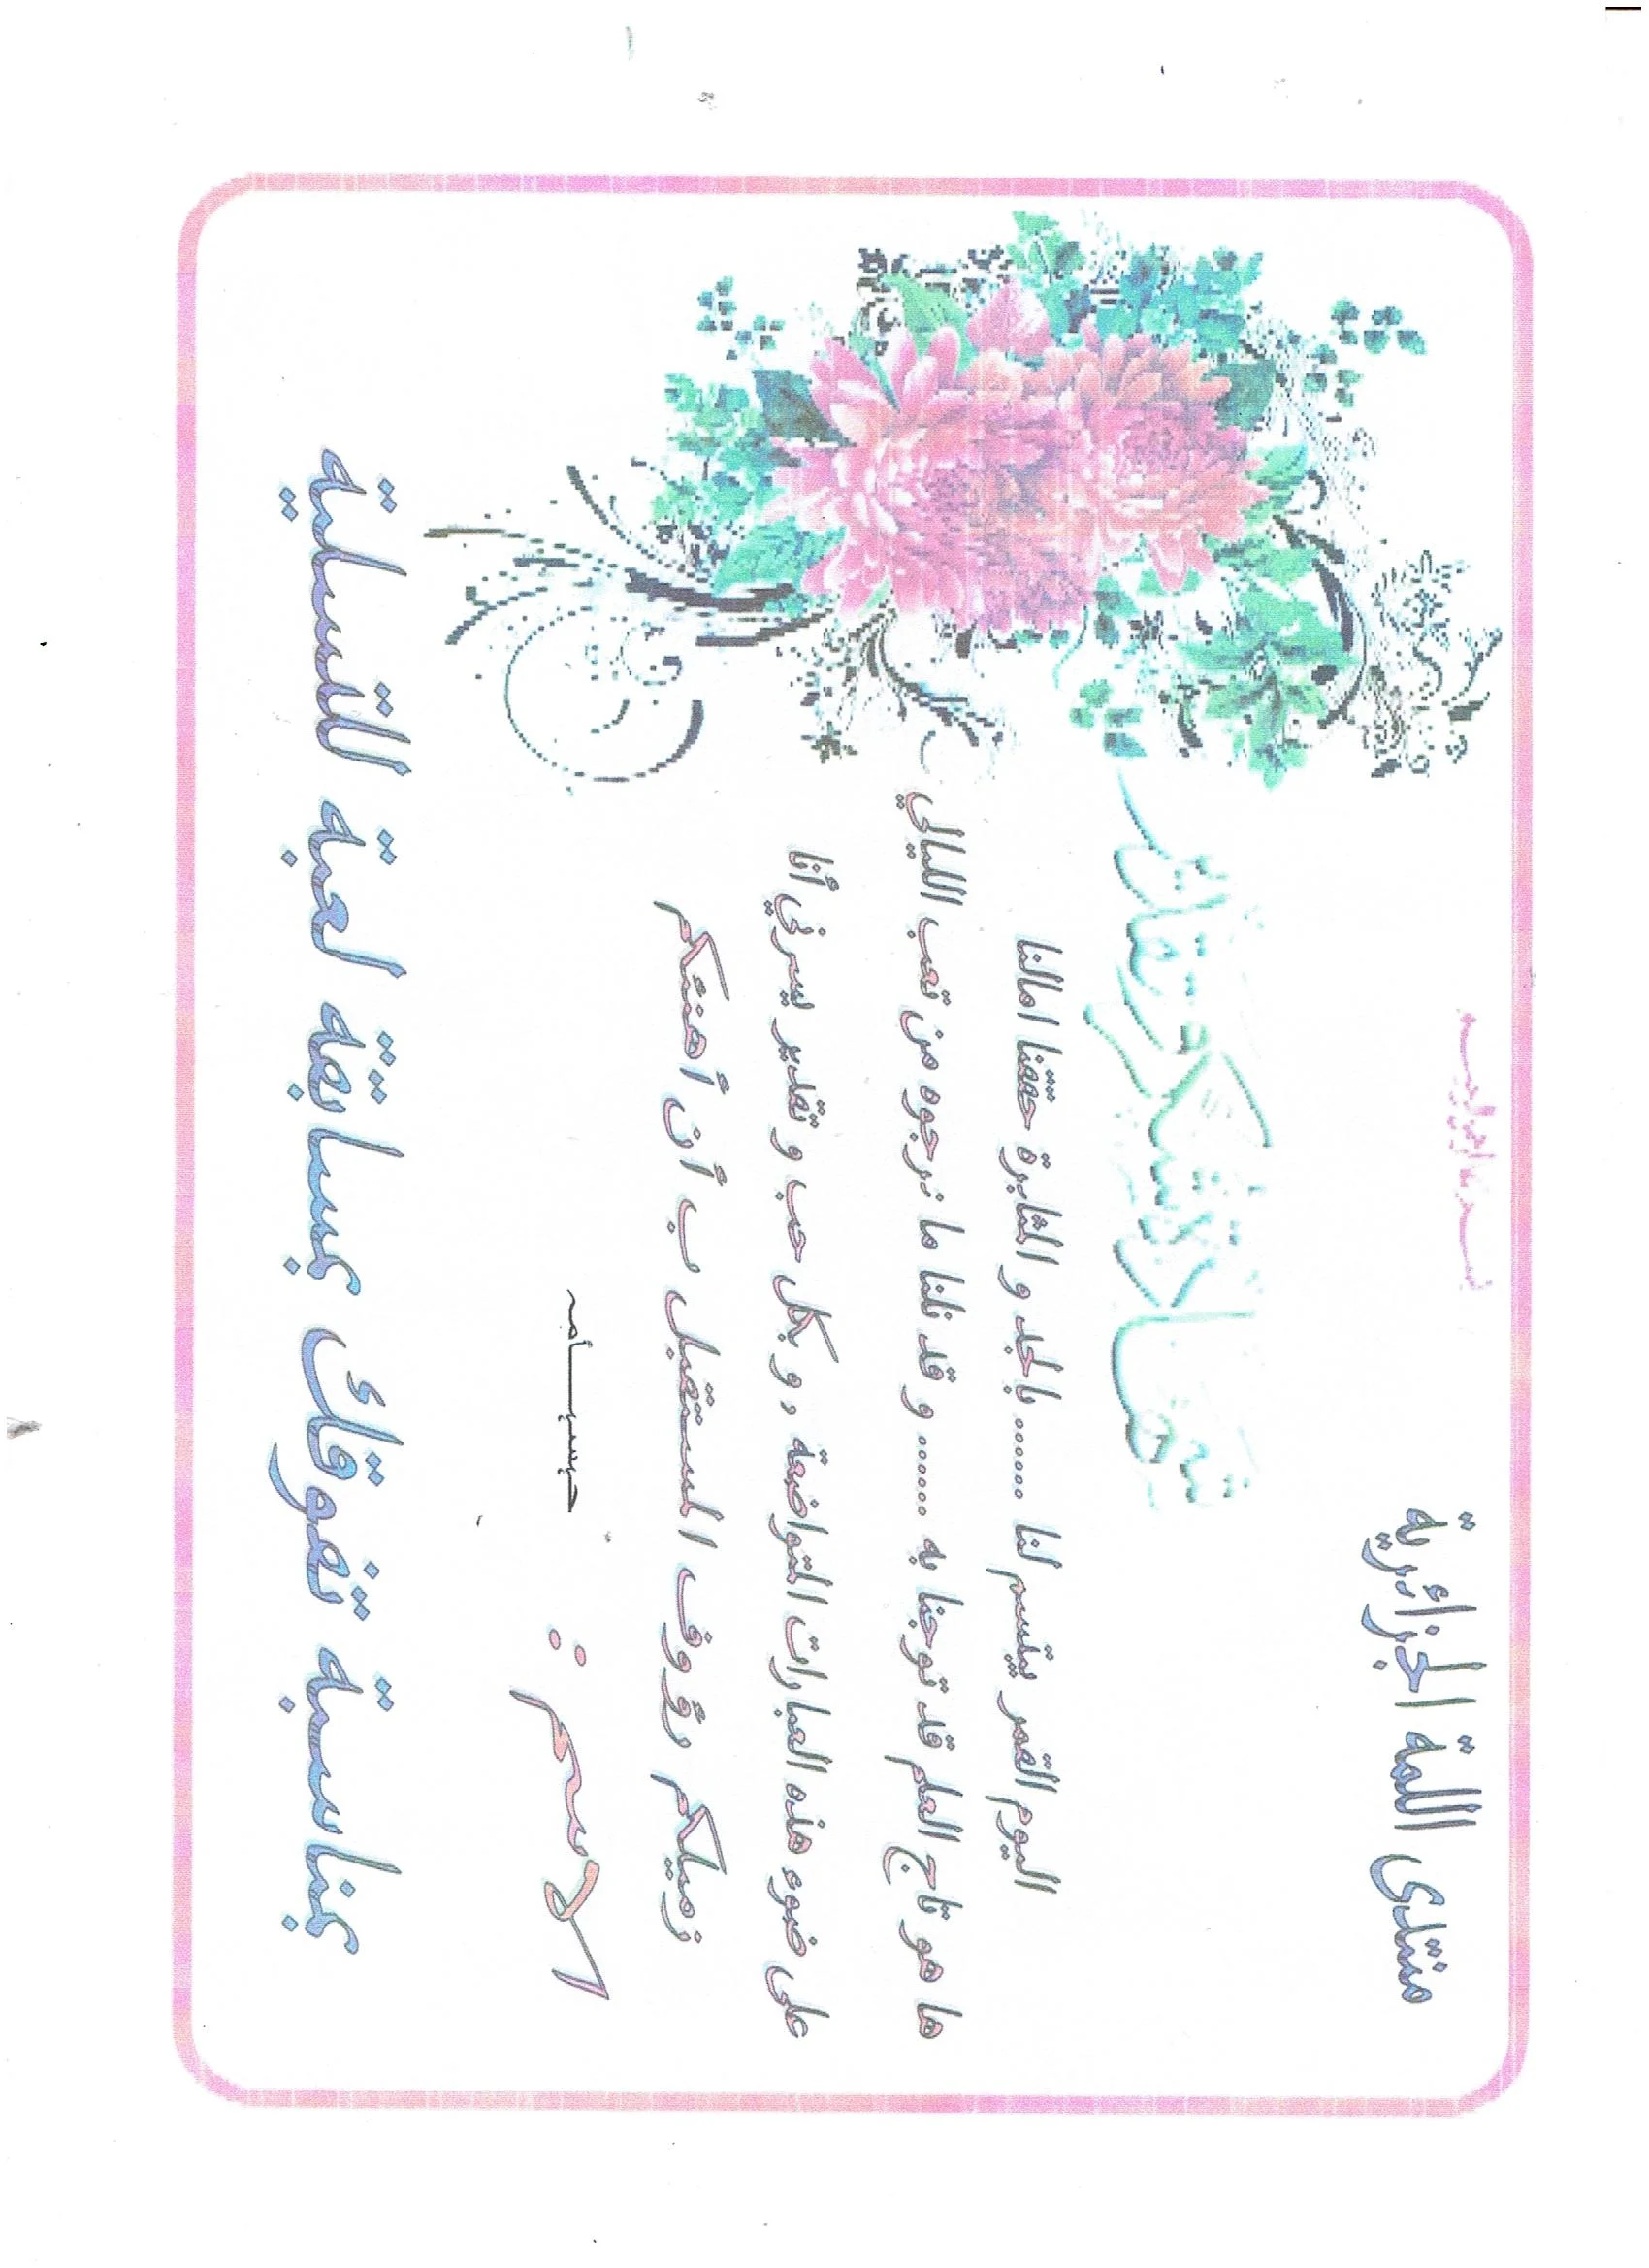 بسم الله الرحمن الرحيم
منتدى اللمة الجزائرية
شهادة شكر و تقدير
اليوم القمر يبتسم لنا ...... بالجد و المثابرة حققنا امالنا
ها هو تاج العلم قد توجنا به ...... و قد نلنا ما نرجوه من تعب الليالي
على ضوء هذه العبارات المتواضعة , و بكل حب و تقدير يسرني أنا
زميلكم رؤوف المستقبل ب أن أهنئكم
الاسم :
بمناسبة تفوقك بمسابقة لعبة للتسلية